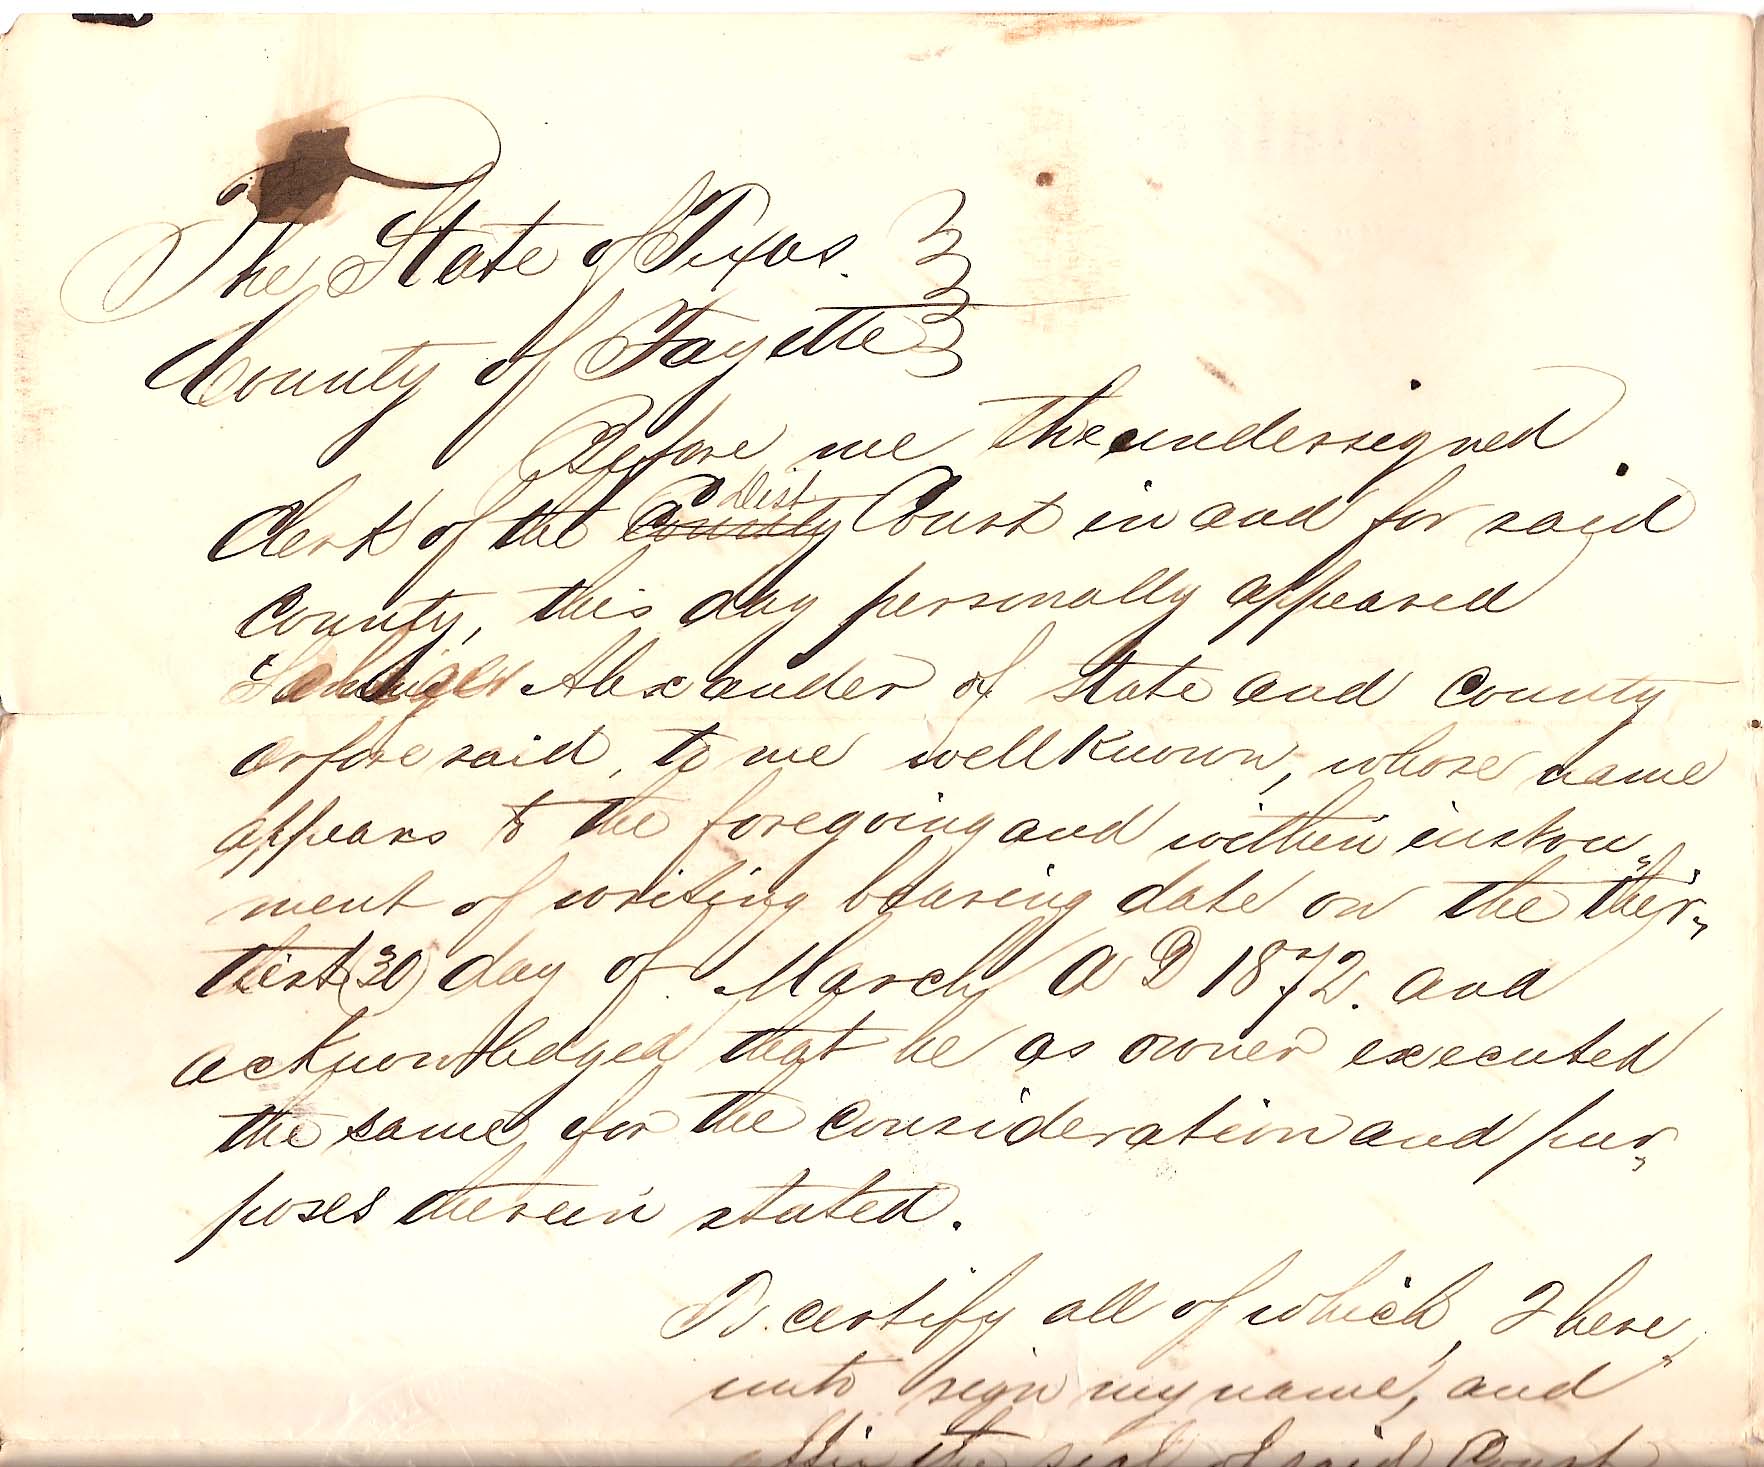 The State of Texas.
County of Fayette
Before me the undersigned
Clerk of the County Dist Court in and for said
County, this day personally appeared
Alexander of State and County
aforesaid, to me well known, whose name
appears to the foregoing and within instru„
ment of writing bearing date on the thir„
tiest (30) day of March A D 1872. and
acknowledged that he as owner executed
the same for the consideration and pur„
poses therein stated.
To certify all of which, I here„
unto sign my name, and
affix the seal of said Court